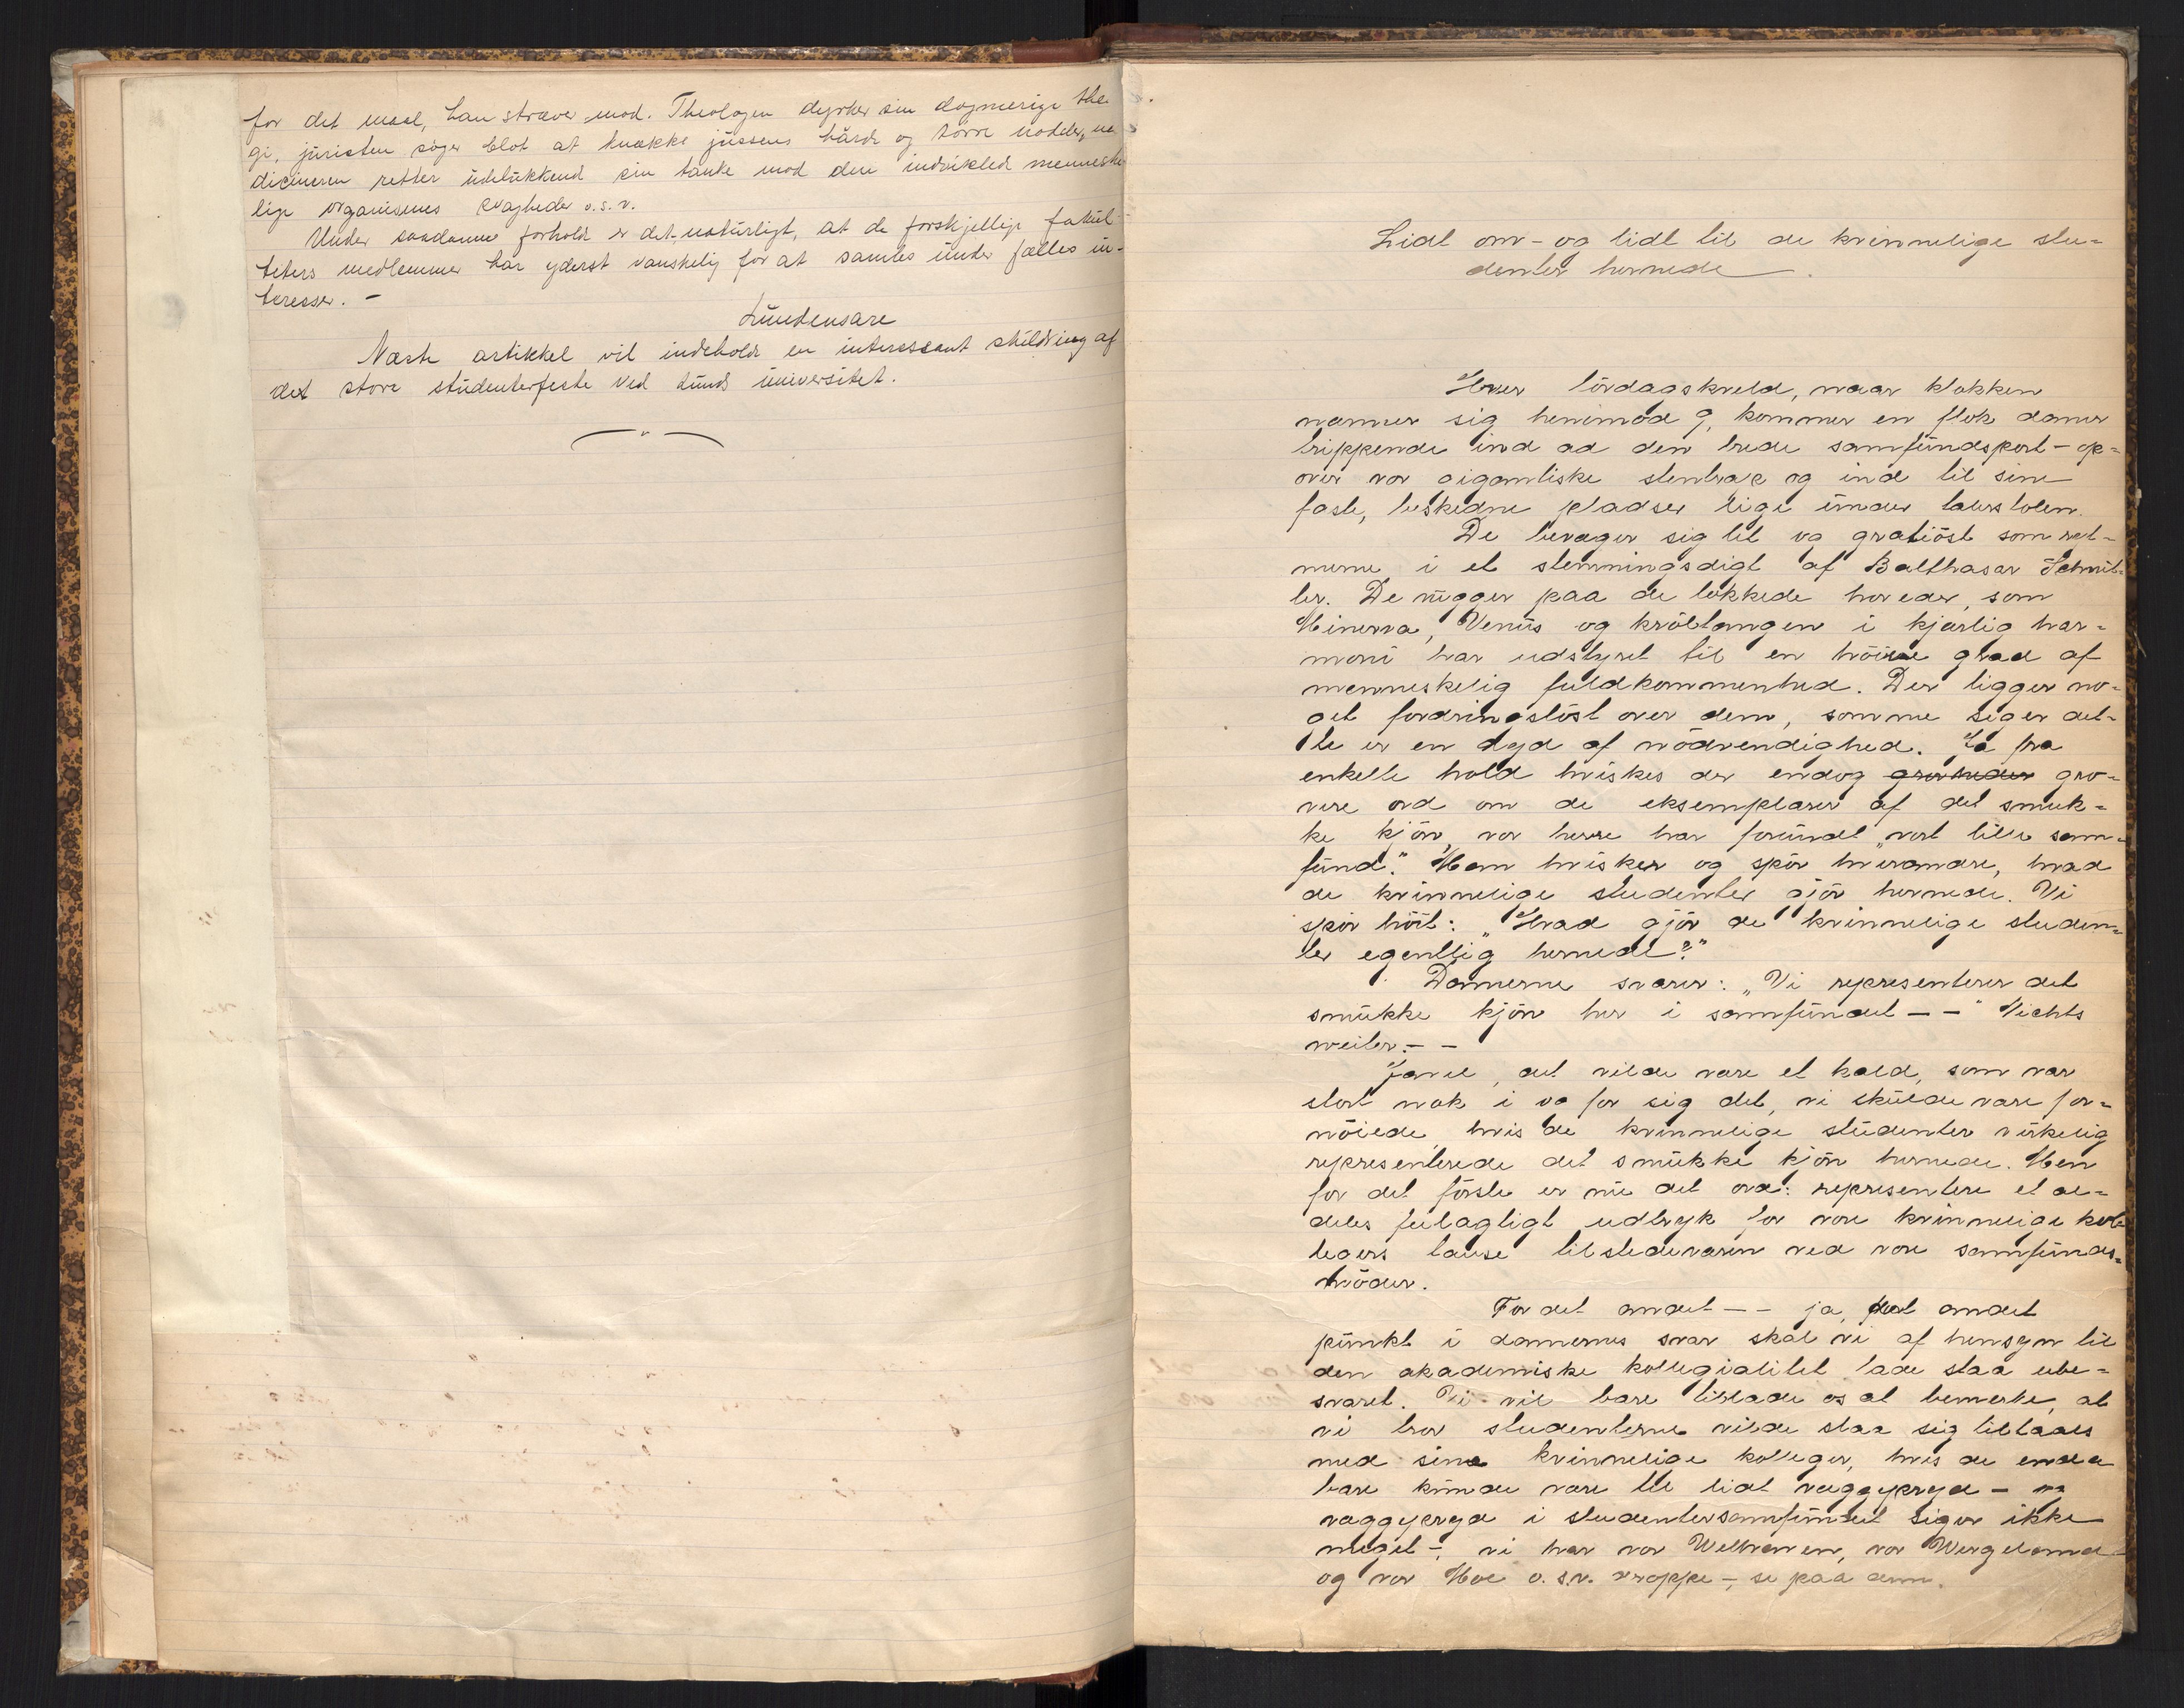 for det maal, han stræver mod. Theologen dyrker sin dogmerige the-
gi, juristen søger blot at knække jussens hårde og tørre nødder, me
dicineren retter udelukkend sin tanke mod den indviklede menneske
lige organismes svagheder o.s.v.
Under saadanne forhold er det naturligt, at de forskjellige fakul-
teters medlemmer har yderst vanskelig for at samles under fælles in-
teresser. -
Lundensare
Næste artikkel vil indeholde en interessant skildring af
det store studenterfeste ved Lunds universitet.
Lidt om - og lidt til de kvinnelige stu-
denter hernede.
Hver lördagskveld, naar klokken
nærmer sig henimod 9, kommer en flok damer
trippende ind ad den brede samfundsport - op-
over vor gigantiske stentrap og ind til sine
faste, beskedne pladser lige under talerstolen.
De bevæger sig let og gratiöst som ryt-
merne i et stemningsdigt af Balthasar Schmit-
ler. De nigger paa de lokkede hoveder, som
Minerva, Venus og kröltangen i kjærlig har-
moni har udstyret til en höiere grad af
menneskelig fuldkommenhed. Der ligger no-
get fordringslöst over dem, somme siger det-
te er en dyd af nödvendighed. Ja fra
enkelte hold hviskes der endog grovheder gro-
vere ord om de eksemplarer af det smuk-
ke kjön, vor herre har forundt "vort lille sam-
fund." Man hvisker og spör hverandre, hvad
de kvinnelige studenter gjör hernede. Vi
spör höit: "Hvad gjör de kvinnelige studen-
ter egentlig hernede?"
Damerne svarer: "Vi representerer det
smukke kjön her i samfundet - -" Nichts
weiter. - -
Javel, det vilde være et kald, som var
stort nok i og for sig det, vi skulde være for-
nöiede, hvis de kvinnelige studenter virkelig
representerede det smukke kjön hernede. Men
for det förste er nu det ord: representere et al-
deles feilagtigt udtryk for vore kvinnelige kol-
legers tause tilstedeværen ved vore samfunds-
möder.
For det andet - - ja, det andet
punkt i damernes svar skal vi af hensyn til
den akademiske kollegialitet lade staa ube-
svaret. Vi vil bare tillade os at bemerke, at
vi tror studenterne vilde slaa sig tiltaals
med sine kvinnelige kolleger, hvis de enda
bare kunde være lidt væggepryd - og
væggepryd i studentersamfundet siger ikke
meget -, vi har vor Welhaven, vor Wergeland
og vor Moe o.s.v. deroppe -, se paa dem.